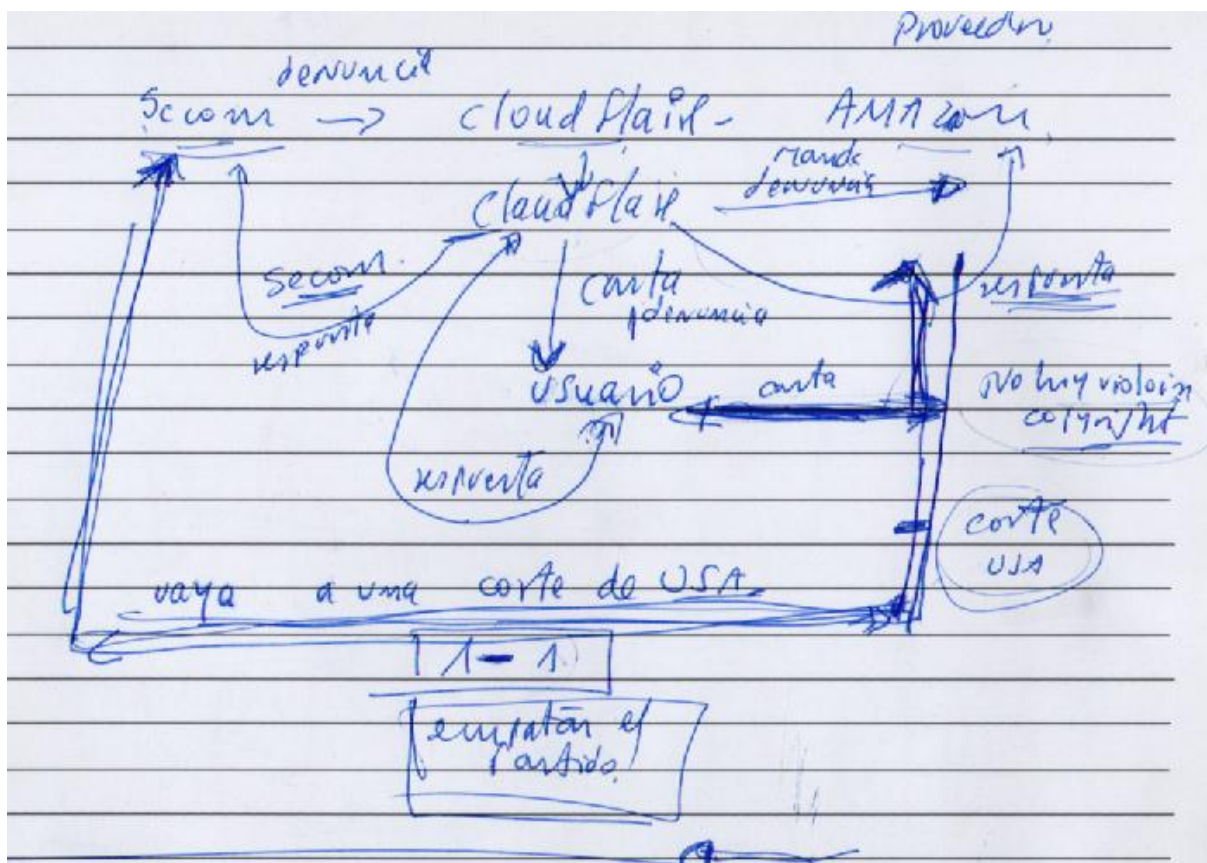 Proveedor
denuncia
Secom → Cloudflair - AMAzon
manda
denuncia
Cloudflair
Secom.
respuesta
carta
denuncia
respuesta
usuario
carta
No hay violoin
copyright
respuesta
corte
USA
vaya a una corte de USA.
1 - 1
empatar el
partido